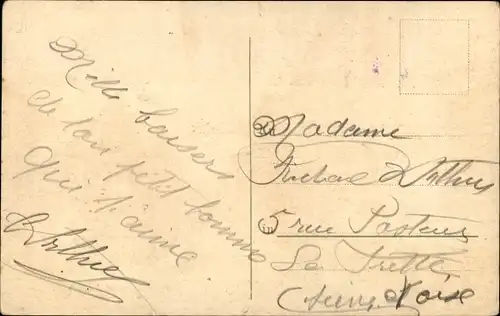 Mille baisers
de ton petit homme
qui t'aime
Arthur
Madame
Arthur
5 rue Pasteur
La Frette
Seine & Oise